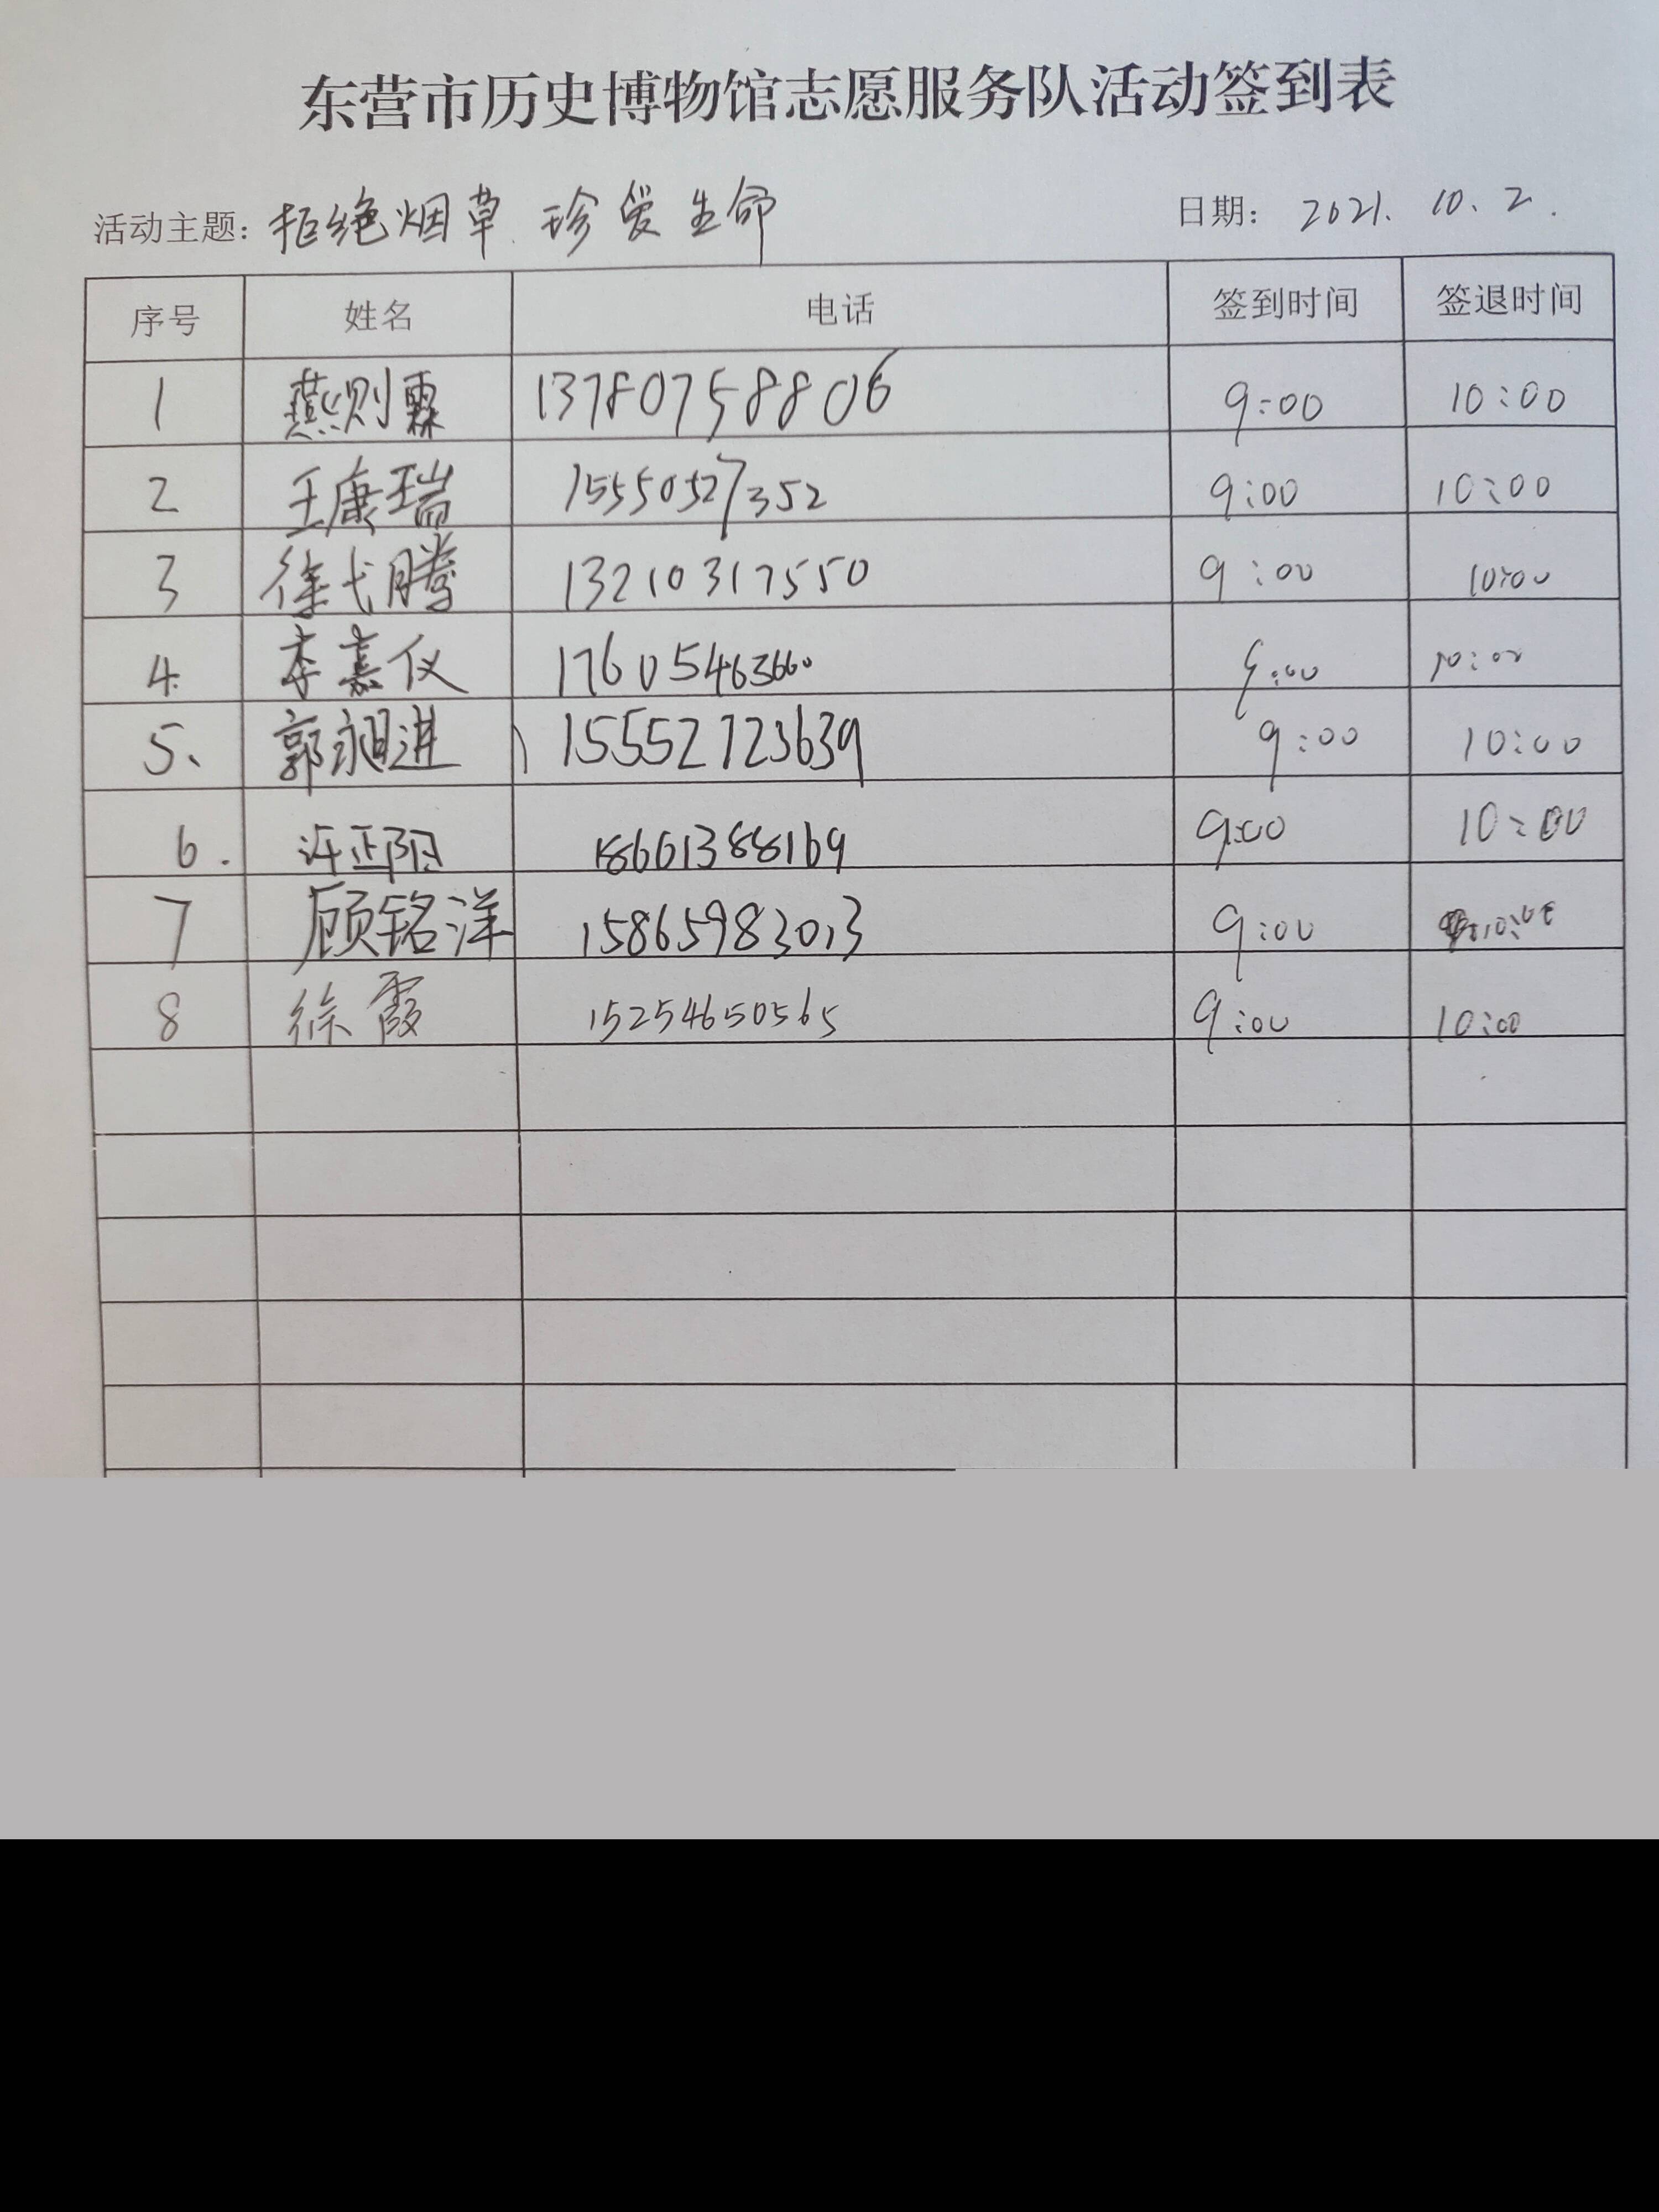 东营市历史博物馆志愿服务队活动签到表
活动主题：拒绝烟草 珍爱生命 日期： 2021. 10. 2.
序号 姓名 电话 签到时间 签退时间
1 燕则霖 13780758806 9:00 10:00
2 王康瑞 15550527352 9:00 10:00
3 徐弋腾 13210317550 9:00 10:00
4. 李嘉仪 17605463660 9:00 10:00
5、 15552723639 9:00 10:00
6. 许正阳 18661388169 9:00 10:00
7 顾铭洋 15865983013 9:00 10:00
8 徐霞 15254650565 9:00 10:00